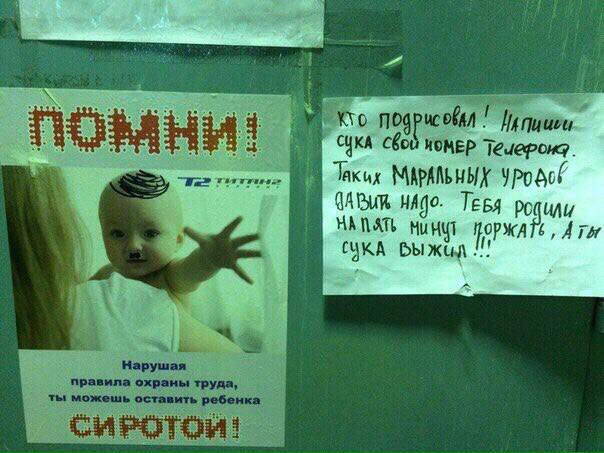 ПОМНИ!
Т2 ТИТАН2
Нарушая
правила охраны труда,
ты можешь оставить ребенка
СИРОТОЙ!
кто подрисовал! Напиши
сука свой номер телефона.
Таких Маральных уродов
давить надо. Тебя родили
на пять минут поржать, а ты
сука выжил!!!